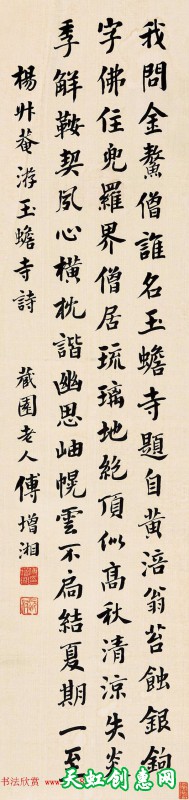 我問金鰲僧誰名玉蟾寺題自黃涪翁苔蝕銀鉤
字佛住兜羅界僧居琉璃地絕頂似高秋清涼失炎
季解鞍契夙心橫枕諧幽思岫幌雲不扃結夏期一至
楊升菴游玉蟾寺詩 藏園老人傅增湘
书法欣赏
天虹创惠网